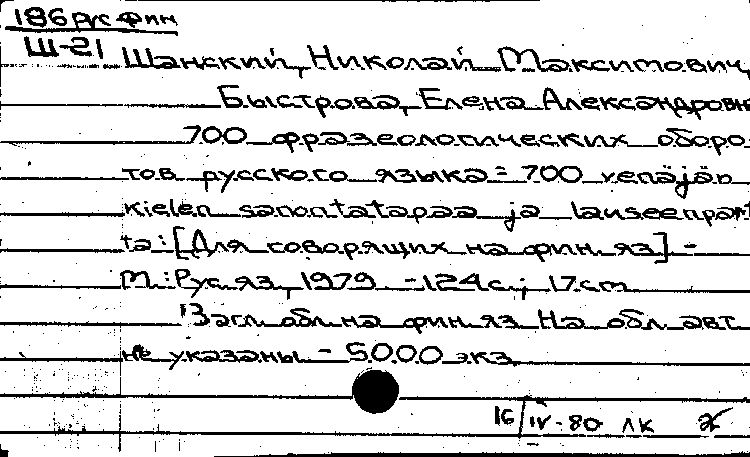 186 рус фин
Ш-21
Шанский, Николай Максимович,
Быстрова, Елена Александровн
700 фразеологических оборо-
тов русского языка = 700 venäjän
kielen sanontatapaa ja lauseenpart
ta: [Для говорящих на фин. яз] -
М.: Рус. яз, 1979. - 124 с.; 17 см
Загл. обл. на фин. яз. На обл. авт.
не указаны - 5000 экз.
16/IV-80 ЛК